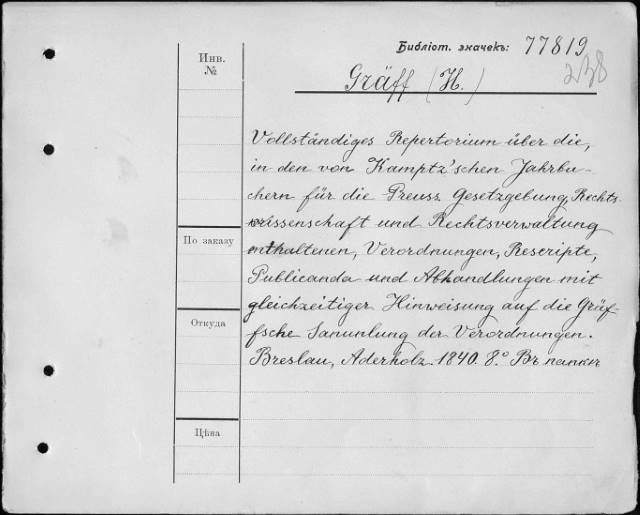 Библіот. значекъ: 77819
Инв.
№
238
Gräff (H.)
Vollständiges Repertorium über die,
in den von Kamptz'schen Jahrbu-
chern für die Preuss Gesetzgebung, Rechts-
wissenschaft und Rechtsverwaltung
enthaltenen, Verordnungen, Rescripte,
По заказу
Publicanda und Abhandlungen mit
gleichzeitiger Hinweisung auf die Gräf-
Откуда
fsche Sanunlung der Verordnungen.
Breslau, Aderholz. 1840. 8.° Вг папкѣ
Цѣна